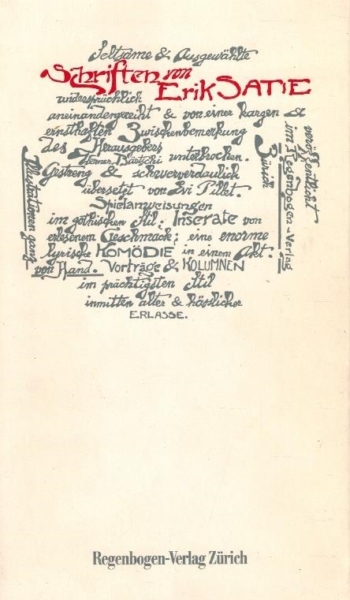 Seltsame & Ausgewählte
Schriften von
Erik SATIE
widersprüchlich
aneinandergereiht & von einer kargen &
ernsthaften Zwischenbemerkung
des Herausgebers
Werner Bärtschi unterbrochen.
Gestreng & schwerverdaulich
übersetzt von Evi Pillet.
Spielanweisungen
im gothischen Stil: Inserate von
erlesenem Geschmack: eine enorme
lyrische KOMÖDIE in einem Akt:
von Hand. Vorträge & KOLUMNEN
im prächtigsten Stil
inmitten alter & höfischer
ERLASSE.
Illustrationen ganz
veröffentlicht
im Regenbogen-Verlag
Zürich
Regenbogen-Verlag Zürich